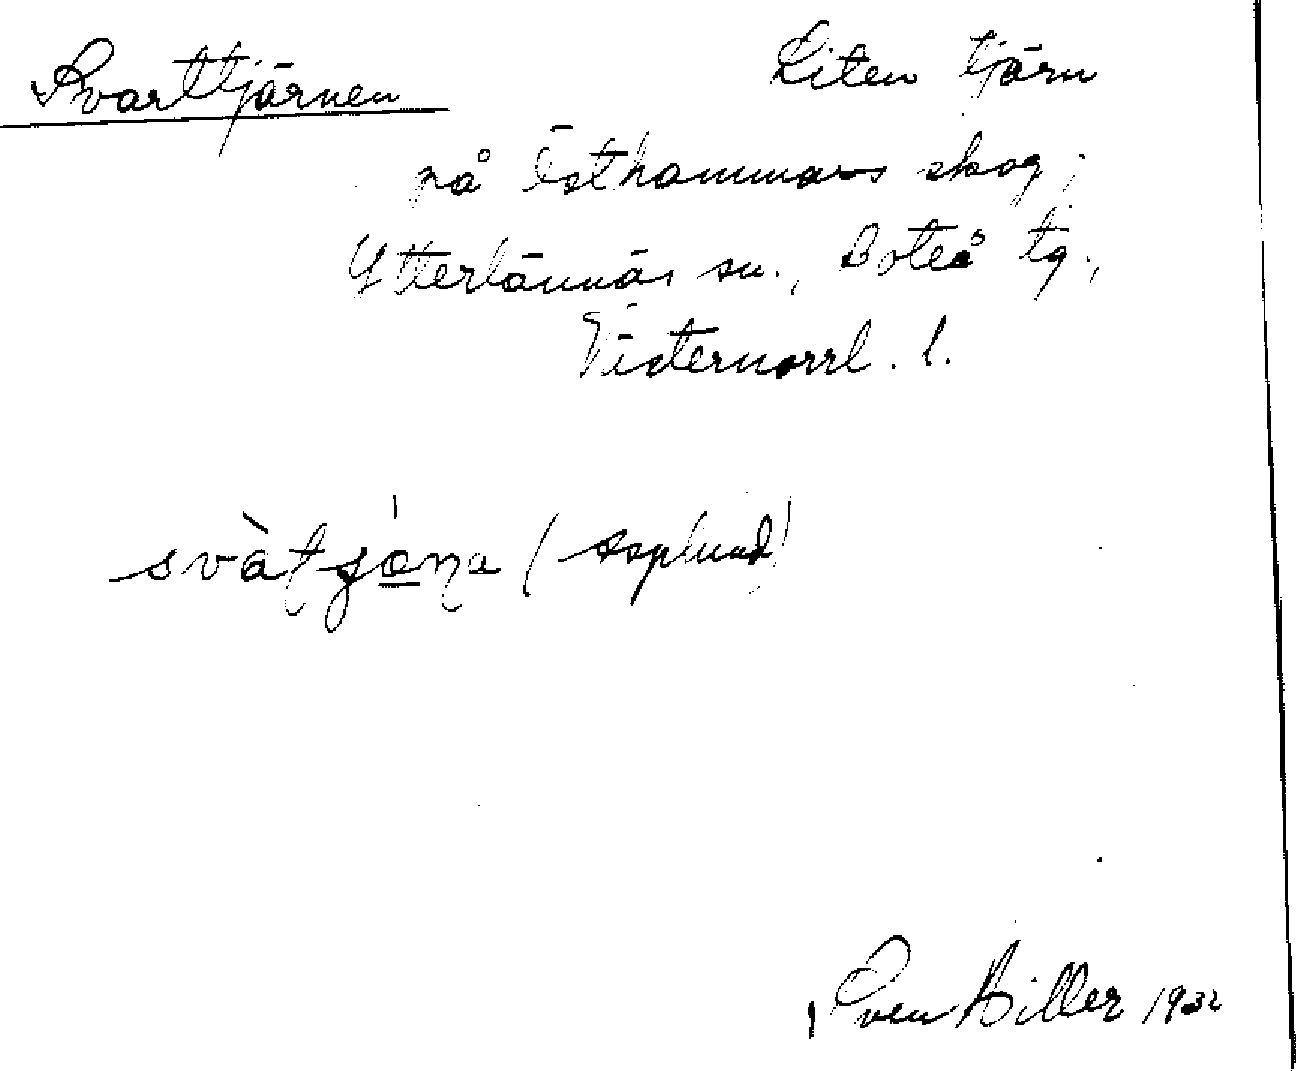 Svarttjärnen
Liten tjärn
på Östhammars skog,
Ytterlännäs sn., Boteå tg.,
Västernorrl. l.
svàtjǿṇa (Asplund)
Sven Hiller 1932